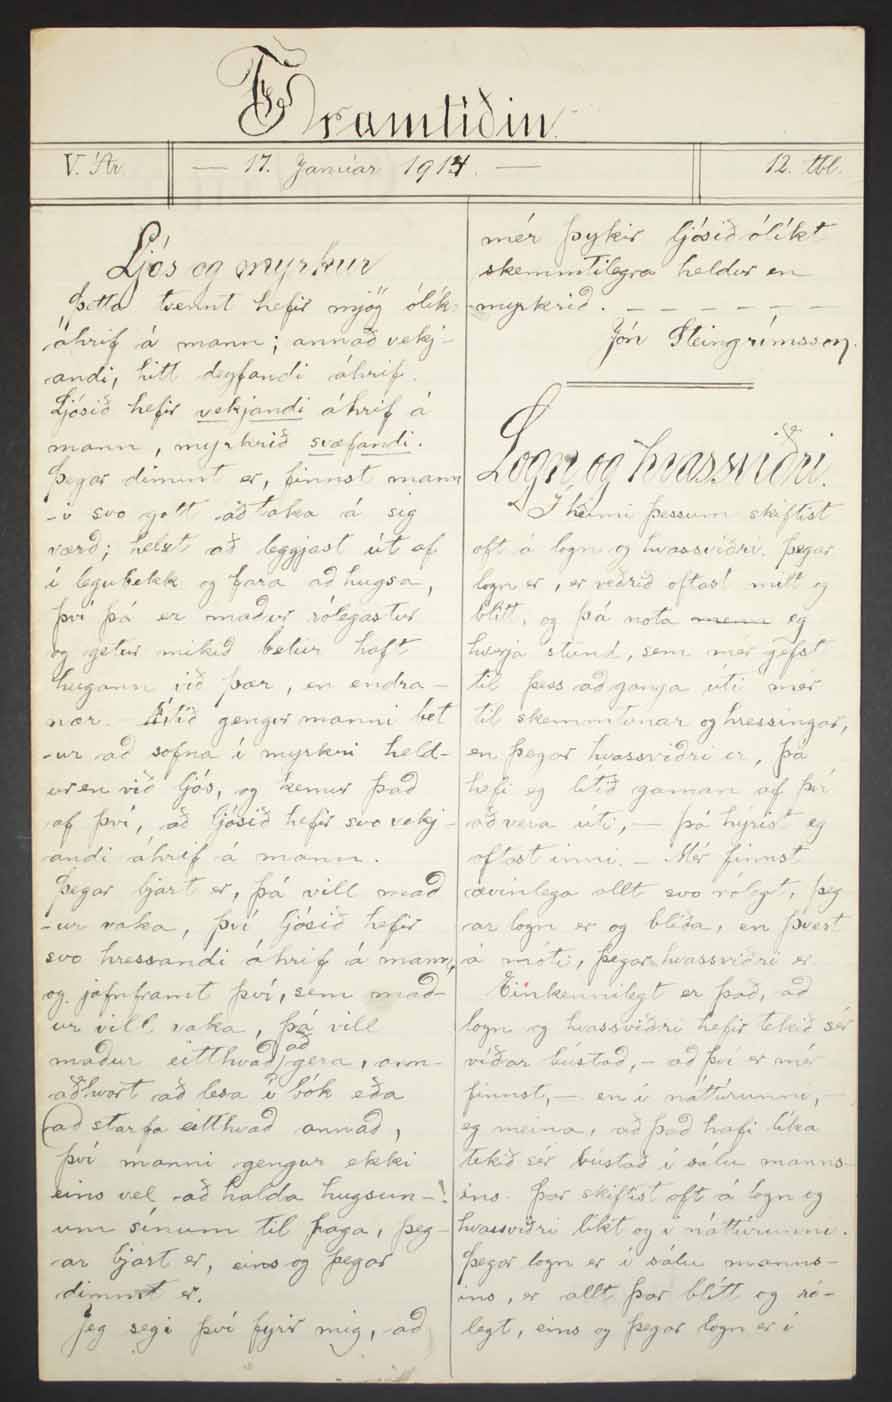 Framtíðin.
V. Ár
— 17. Janúar 1914. —
12. tbl.
Ljós og myrkur
Þetta tvennt hefir mjög ólík-
áhrif á mann; annað vekj-
andi, hitt deyfandi áhrif.
Ljósið hefir vekjandi áhrif á
mann, myrkrið svæfandi.
Þegar dimmt er, finnst mann
-i svo gott að taka á sig
værð; helst að leggjast út af
í legubekk og fara að hugsa,
því þá er maður rólegastur
og getur mikið betur haft
hugann við þær, en endra-
nær. Ætíð gengur manni bet
-ur að sofna í myrkri held-
ur en við ljós, og kemur það
af því, að ljósið hefir svo vekj-
andi áhrif á mann.
Þegar bjart er, þá vill mað
-ur vaka, því ljósið hefir
svo hressandi áhrif á mann,
og jafnframt því, sem mað-
ur vill vaka, þá vill
maður eitthvað að gera, ann-
aðhvort að lesa í bók eða
að starfa eitthvað annað,
því manni gengur ekki
eins vel að halda hugsun-
um sínum til þaga, þeg-
ar bjart er, eins og þegar
dimmt er.
Jeg segi því fyrir mig, að
mér þykir ljósið ólíkt
skemmtilegra heldur en
myrkrið. — — — — — —
Jón Steingrímsson.
Logn og hvassviðri.
Í heimi þessum skiftist
oft á logn og hvassviðri. Þegar
logn er, er veðrið oftast milt og
blítt, og þá nota menn eg
hverja stund, sem mér gefst
til þess að ganga úti mér
til skemmtunar og hressingar,
en þegar hvassviðri er, þá
hefi eg lítið gaman af því
að vera úti, — þá hýrist eg
oftast inni. — Mér finnst
ævinlega allt svo rólegt, þeg
ar logn er og blíða, en þvert
á móti, þegar hvassviðri er
Einkennilegt er það, að
logn og hvassviðri hefir tekið sér
víðar bústað, — að því er mér
finnst, — en í náttúrunni, —
eg meina, að það hafi líka
tekið sér bústað í sálu manns-
ins. Þar skiftist oft á logn og
hvassviðri líkt og í náttúrunni.
Þegar logn er í sálu manns-
ins, er allt þar blítt og ró-
legt, eins og þegar logn er í